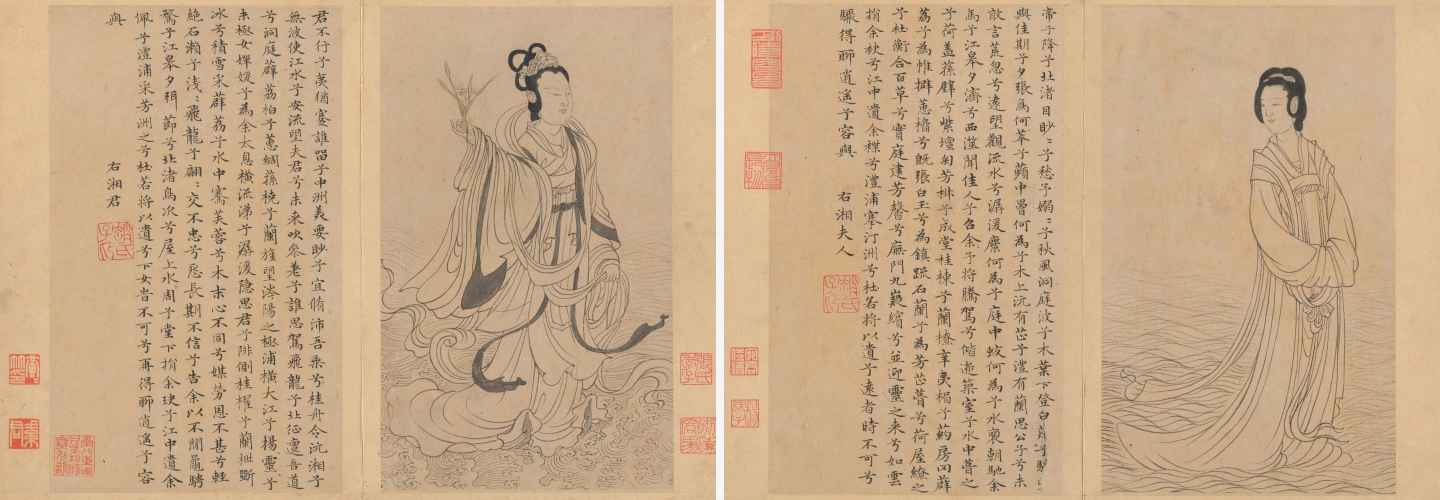 君不行兮夷猶蹇誰留兮中洲美要眇兮宜脩沛吾乘兮桂舟令沅湘兮
無波使江水兮安流望夫君兮未来吹參差兮誰思駕飛龍兮北征邅吾道
兮洞庭薜荔柏兮蕙綢蓀橈兮蘭旌望涔陽之極浦橫大江兮揚靈兮
未極女嬋媛兮為余太息橫流涕兮潺湲隱思君兮陫側桂櫂兮蘭枻斲
冰兮積雪采薜荔兮水中搴芙蓉兮木末心不同兮媒勞恩不甚兮輕
絕石瀨兮淺:飛龍兮翩:交不忠兮怨長期不信兮告余以不閒鼂騁
騖兮江皋夕弭節兮北渚鳥次兮屋上水周兮堂下捐余玦兮江中遺余
佩兮澧浦采芳洲之兮杜若將以遺兮下女旹不可兮再得聊逍遙兮容
與
右湘君
帝子降兮北渚目眇:兮愁予嫋:兮秋風洞庭波兮木葉下登白薠兮騁
與佳期兮夕張鳥何萃兮蘋中罾何為兮木上沅有芷兮澧有蘭思公子兮未
敢言荒忽兮遠望觀流水兮潺湲麋何為兮庭中蛟何為兮水裔朝馳余
馬兮江皋夕濟兮西澨聞佳人兮召余兮將騰駕兮偕逝築室兮水中葺之
兮荷蓋蓀壁兮紫壇匊芳椒兮成堂桂棟兮蘭橑辛夷楣兮葯房罔薜
荔兮為帷擗蕙櫋兮既張白玉兮為鎮疏石蘭兮為芳芷葺兮荷屋繚之
兮杜衡合百草兮實庭建芳馨兮廡門九嶷繽兮並迎靈之来兮如雲
捐余袂兮江中遺余褋兮澧浦搴汀洲兮杜若將以遺兮遠者時不可兮
驟得聊逍遙兮容與
右湘夫人
趙氏子昂